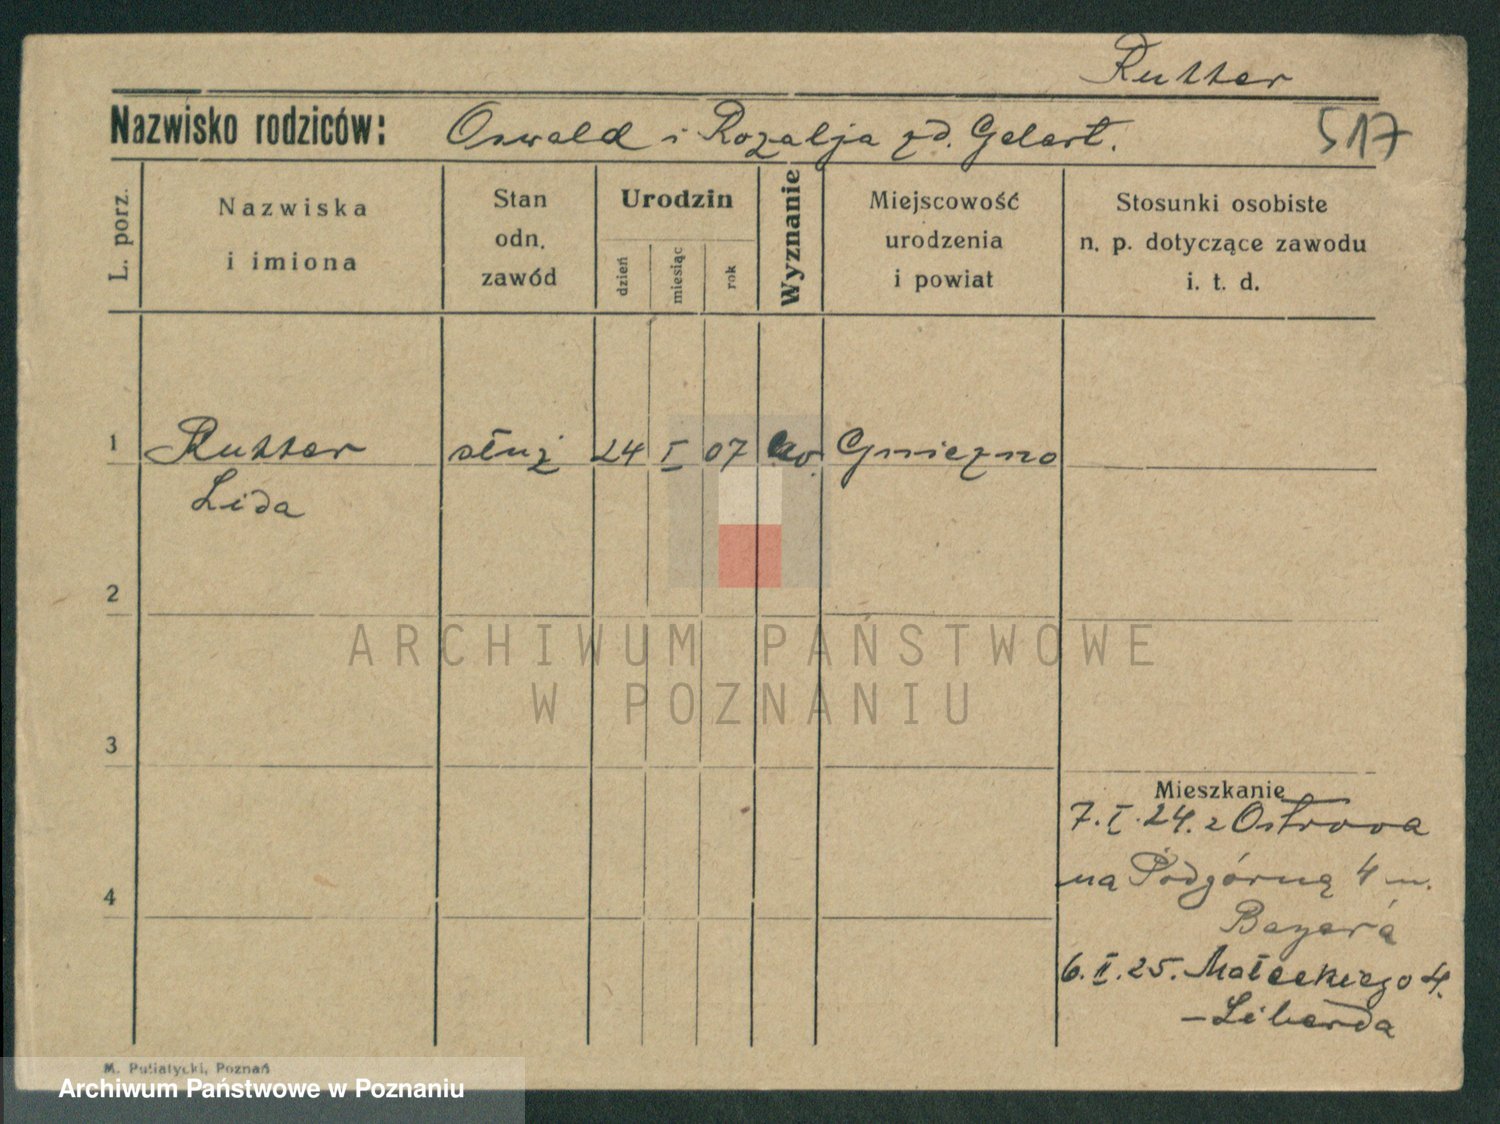 Rutter
Nazwisko rodziców: Oswald i Rozalja zd. Gelert.
517
L. porz.
Nazwiska
i imiona
Stan
odn.
zawód
Urodzin
dzień
miesiąc
rok
Wyznanie
Miejscowość
urodzenia
i powiat
Stosunki osobiste
n. p. dotyczące zawodu
i. t. d.
1 Rutter służ 24 I 07 Gniezno
Lida
2
3
4
Mieszkanie
7. I. 24. z Ostrowa
na Podgórną 4 m.
Bayera
6. II. 25. Małeckiego 4.
– Liberda
M. Putiatycki, Poznań
ARCHIWUM PAŃSTWOWE
W POZNANIU
Archiwum Państwowe w Poznaniu